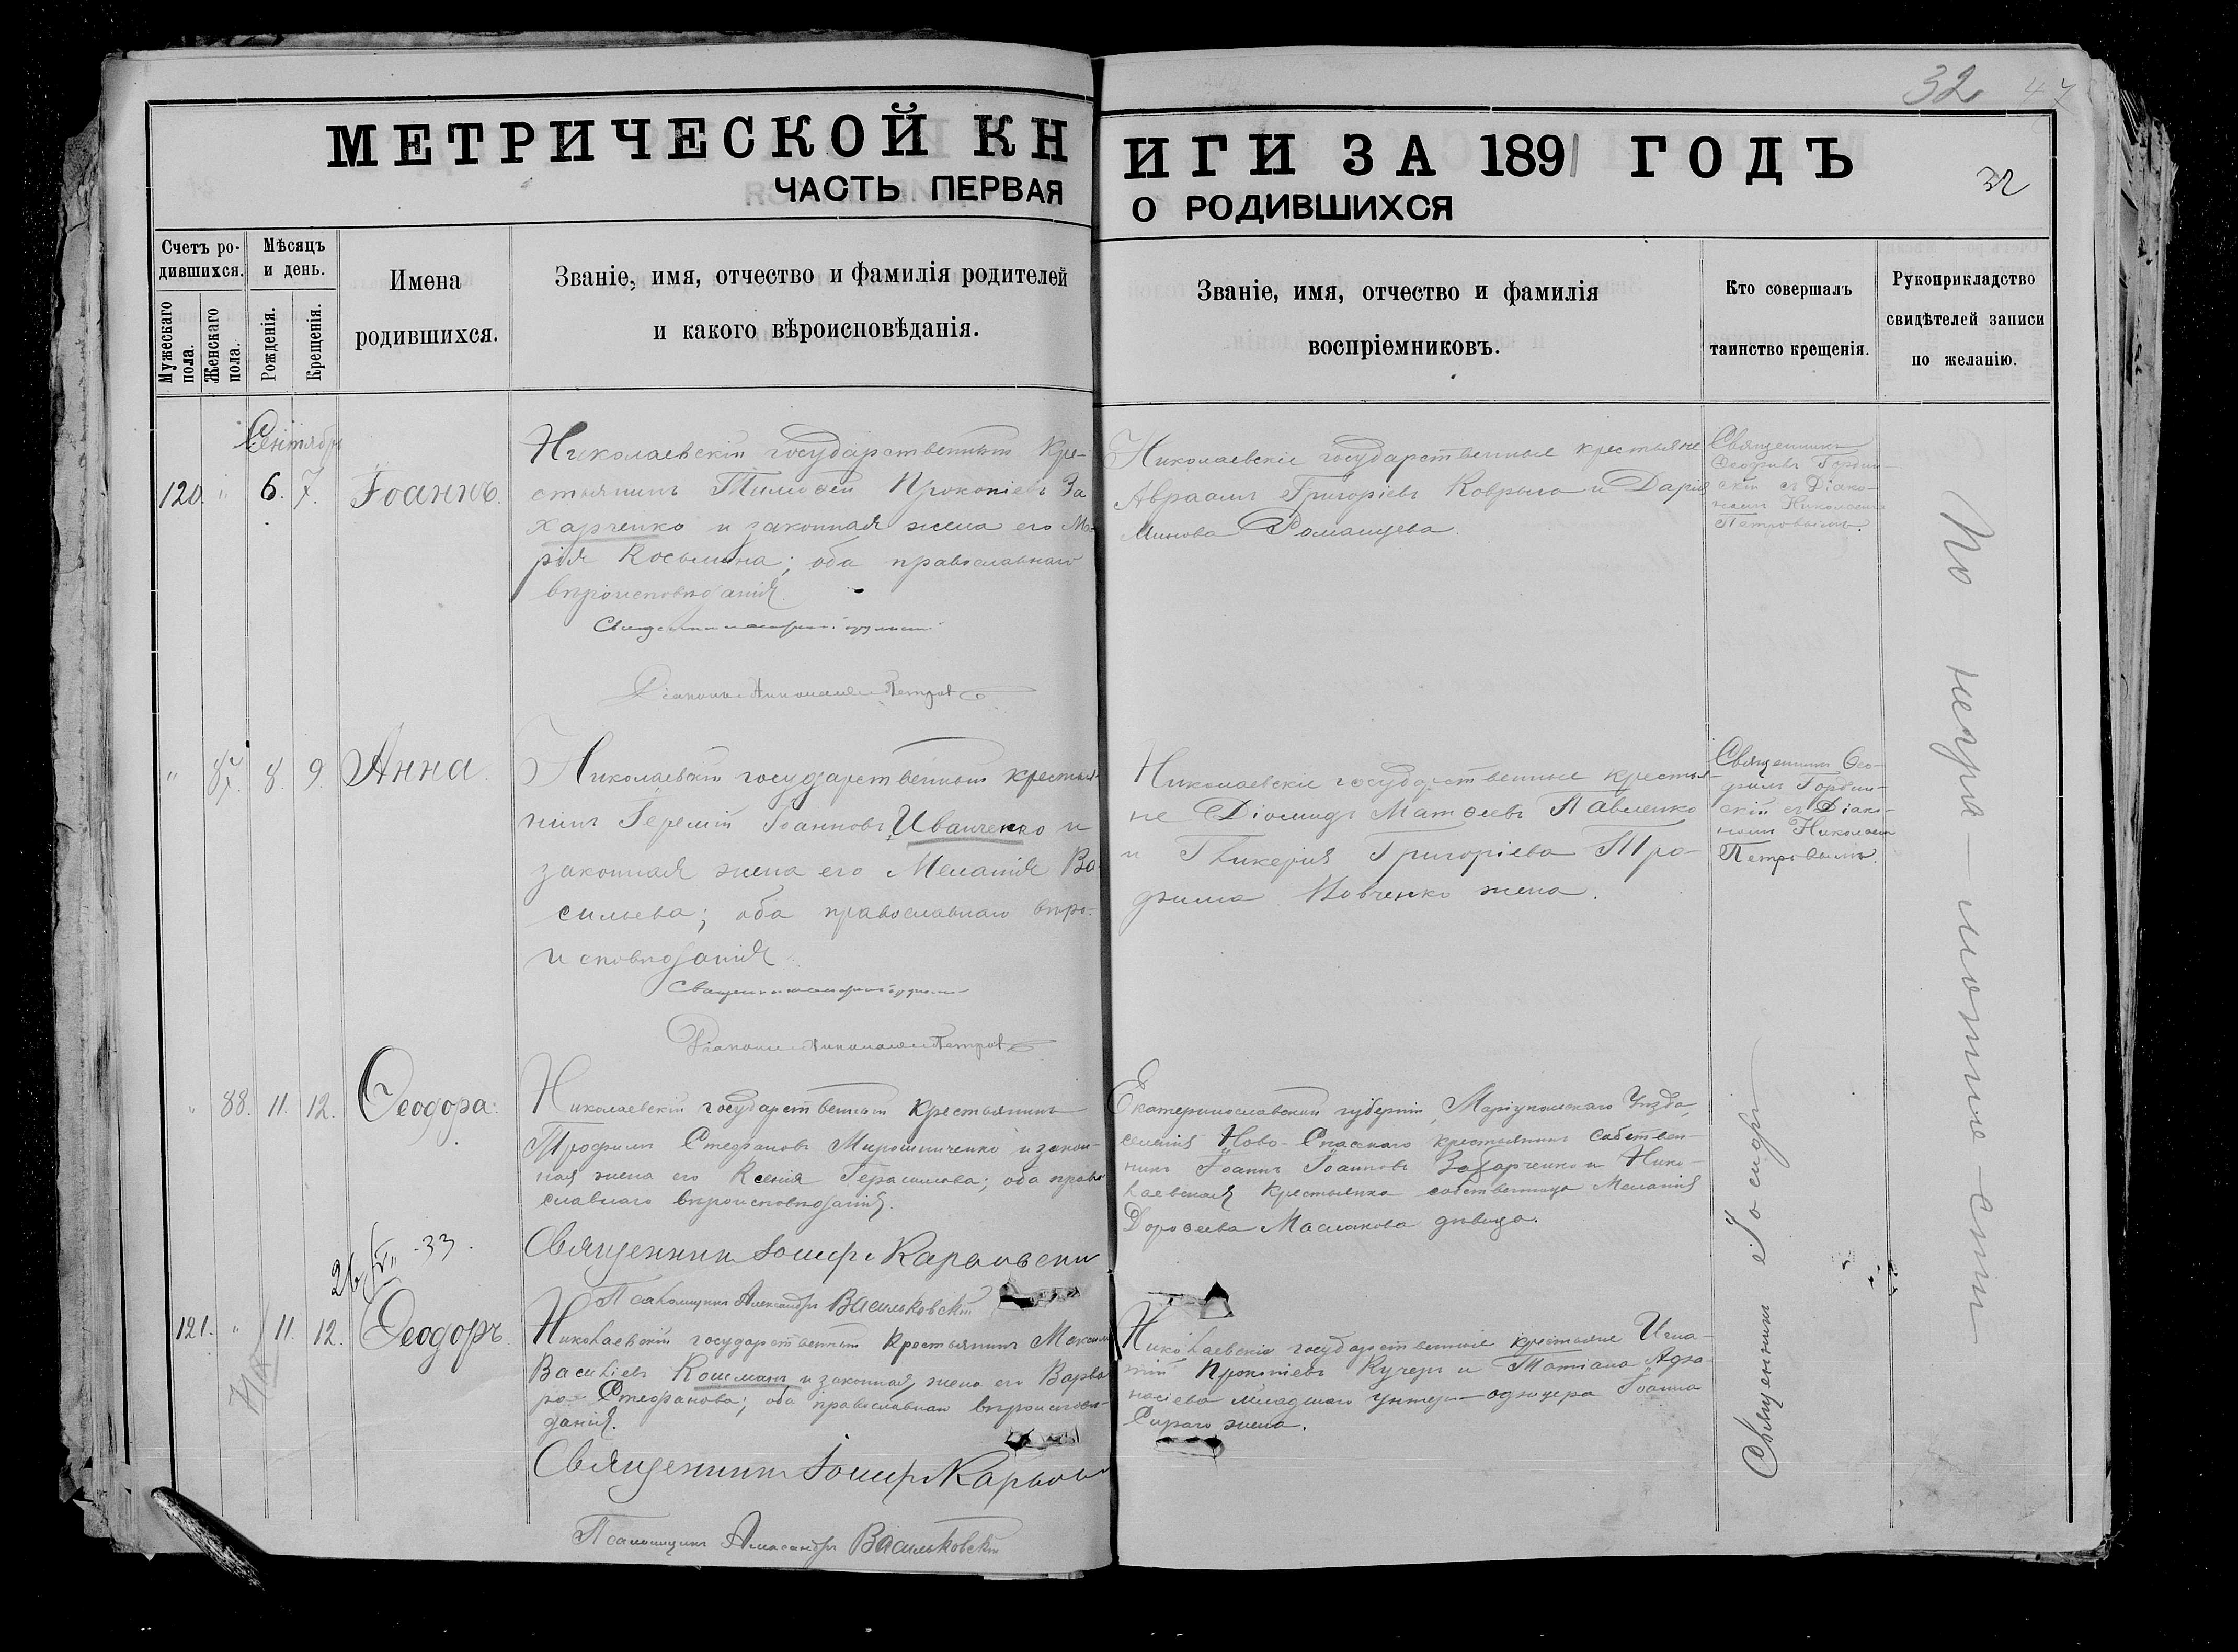 32 47
МЕТРИЧЕСКОЙ КН
ЧАСТЬ ПЕРВАЯ
ИГИ ЗА 1891 ГОДЪ
О РОДИВШИХСЯ
32
Счетъ ро-
дившихся.
Мужескаго
пола.
Женскаго
пола.
Мѣсяцъ
и день.
Рожденія.
Крещенія.
Имена
родившихся.
Званіе, имя, отчество и фамилія родителей
и какого вѣроисповѣданія.
Званіе, имя, отчество и фамилія
воспріемниковъ.
Кто совершалъ
таинство крещенія.
Рукоприкладство
свидѣтелей записи
по желанію.
Сентябрь
120. " 6. 7. Іоаннъ.
Николаевскій государственный кре-
стьянинъ Тимоѳей Прокопіевъ За
харченко и законная жена его Ма-
рія Косьмина; оба православнаго
вѣроисповѣданія.
Діаконъ Николай Петровъ
Николаевскіе государственные крестьяне
Авраамъ Григоріевъ Коврыга и Дарія
Минова Романцева.
Священникъ
Ѳеофилъ Гордин-
скій съ Діако-
номъ Николаемъ
Петровымъ.
" 87. 8. 9. Анна.
Николаевскій государственный крестья-
нинъ Іеремій Іоанновъ Иванченко и
законная жена его Меланія Ва-
сильева; оба православнаго вѣро-
исповѣданія.
Діаконъ Николай Петровъ
Николаевскіе государственные крестья-
не Діомидъ Матѳеевъ Павленко
и Гликерія Григоріева Тро-
фима Вовченко жена.
Священникъ Ѳео-
филъ Гордин-
скій съ Діако-
номъ Николаемъ
Петровымъ.
" 88. 11. 12. Ѳеодора.
Николаевскій государственный крестьянинъ
Трофимъ Стефановъ Мирошниченко и закон-
ная жена его Ксенія Герасимова; оба право
славнаго вѣроисповѣданія.
Священникъ Іосифъ
Псаломщикъ Александръ Васильковскій
Екатеринославской губерніи, Маріупольскаго Уѣзда,
селенія Ново-Спасскаго крестьянинъ собствен-
никъ Іоаннъ Іоанновъ Захарченко и Нико-
лаевская крестьянка собственница Меланія
Дороѳеева Маслакова дѣвица.
-33.
121. " 11. 12. Ѳеодоръ.
Николаевскій государственный крестьянинъ Максимъ
Василіевъ Кошманъ и законная жена его Варва
ра Стефанова; оба православнаго вѣроисповѣ-
данія.
Священникъ Іосифъ
Псаломщикъ Александръ Васильковскій
Николаевскіе государственные крестьяне Игна-
тій Прокопіевъ Кучеръ и Татіана Аѳа-
насіева младшаго унтеръ-офицера Іоанна
Сираго жена.
Священникъ Іосифъ